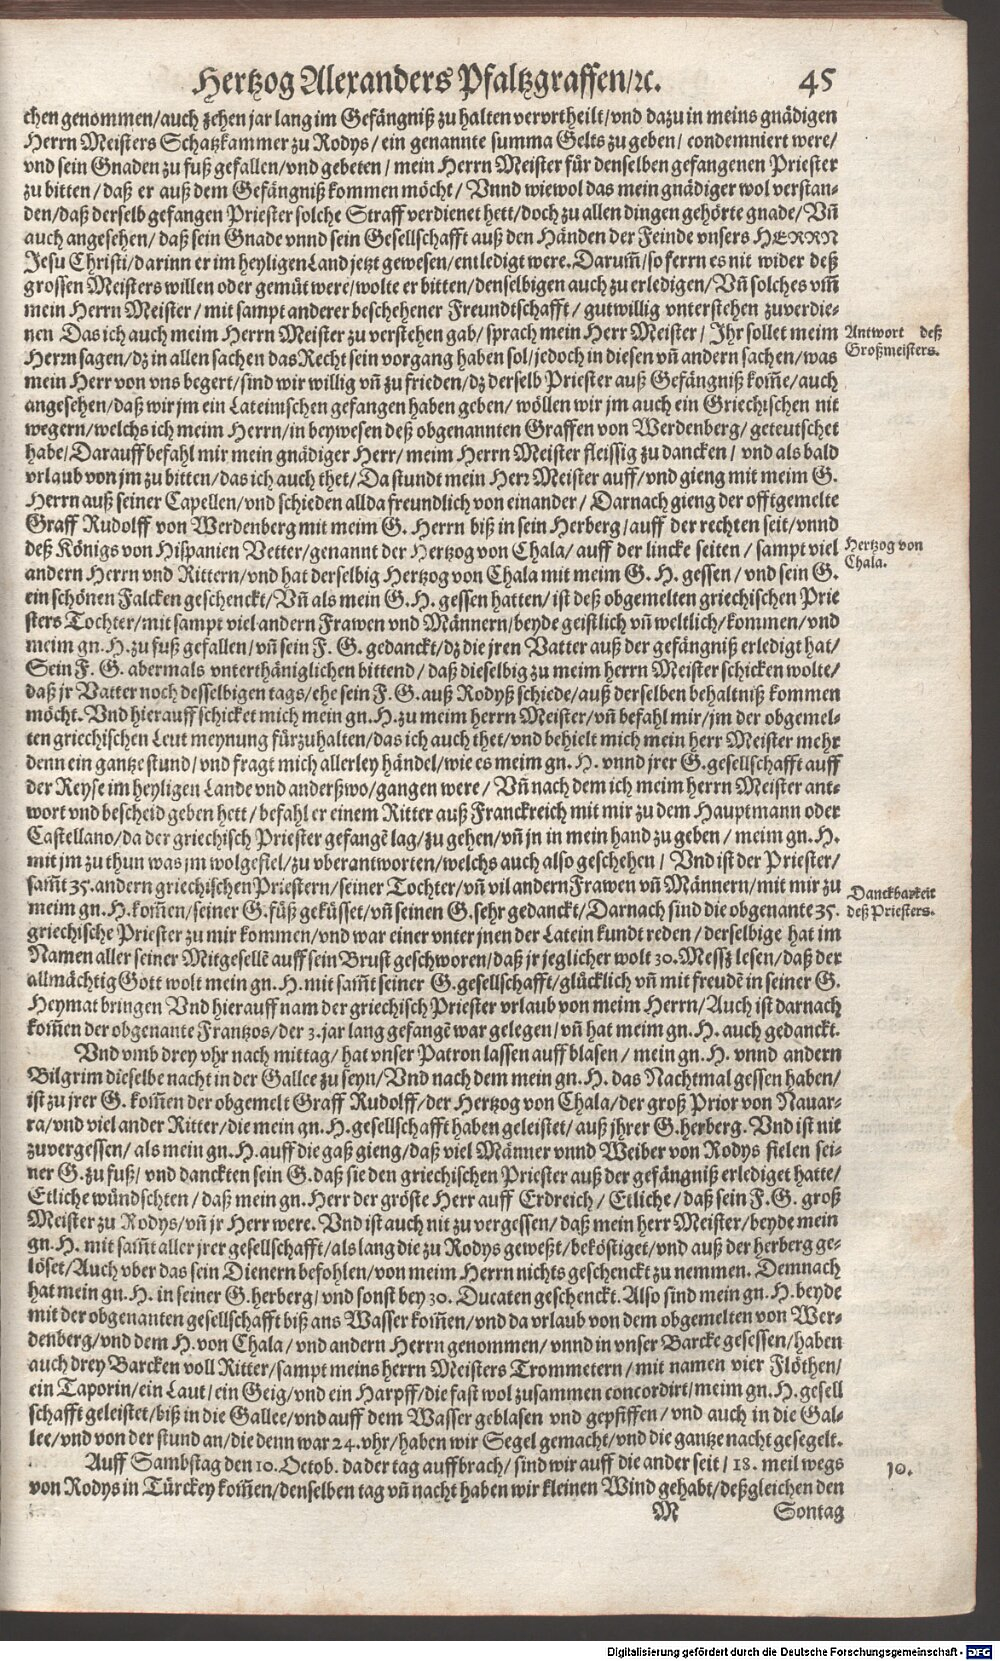 Hertzog Alexanders Pfaltzgraffen/ꝛc. 45
chen genommen/auch zehen jar lang im Gefängniß zu halten verortheilt/vnd dazu in meins gnädigen
Herrn Meisters Schatzkammer zu Rodys/ein genannte summa Gelts zu geben/condemniert were/
vnd sein Gnaden zu fuß gefallen/vnd gebeten/mein Herrn Meister für denselben gefangenen Priester
zu bitten/daß er auß dem Gefängniß kommen möcht/Vnnd wiewol das mein gnädiger wol verstan-
den/daß derselb gefangen Priester solche Straff verdienet hett/doch zu allen dingen gehörte gnade/Vñ
auch angesehen/daß sein Gnade vnnd sein Gesellschafft auß den Händen der Feinde vnsers HERRN
Jesu Christi/darinn er im heyligen Land jetzt gewesen/entledigt were. Darum̃/so ferrn es nit wider deß
grossen Meisters willen oder gemüt were/wolte er bitten/denselbigen auch zu erledigen/Vñ solches vm̃
mein Herrn Meister/mit sampt anderer beschehener Freundtschafft/gutwillig vnterstehen zuverdie-
nen Das ich auch meim Herrn Meister zu verstehen gab/sprach mein Herr Meister/Ihr sollet meim
Antwort deß
Großmeisters.
Herrn sagen/dz in allen sachen das Recht sein vorgang haben sol/jedoch in diesen vñ andern sachen/was
mein Herr von vns begert/sind wir willig vñ zu frieden/dz derselb Priester auß Gefängniß kom̃e/auch
angesehen/daß wir jm ein Lateinischen gefangen haben geben/wöllen wir jm auch ein Griechischen nit
wegern/welchs ich meim Herrn/in beywesen deß obgenannten Graffen von Werdenberg/geteutschet
habe/Darauff befahl mir mein gnädiger Herr/meim Herrn Meister fleissig zu dancken/vnd als bald
vrlaub von jm zu bitten/das ich auch thet/Da stundt mein Herr Meister auff/vnd gieng mit meim G.
Herrn auß seiner Capellen/vnd schieden allda freundlich von einander/Darnach gieng der offtgemelte
Graff Rudolff von Werdenberg mit meim G. Herrn biß in sein Herberg/auff der rechten seit/vnnd
deß Königs von Hispanien Vetter/genannt der Hertzog von Chala/auff der lincke seiten/sampt viel
Hertzog von
Chala.
andern Herrn vnd Rittern/vnd hat derselbig Hertzog von Chala mit meim G. H. gessen/vnd sein G.
ein schönen Falcken geschenckt/Vñ als mein G. H. gessen hatten/ist deß obgemelten griechischen Prie
sters Tochter/mit sampt viel andern Frawen vnd Männern/beyde geistlich vñ weltlich/kommen/vnd
meim gn. H. zu fuß gefallen/vñ sein F. G. gedanckt/dz die jren Vatter auß der gefängniß erledigt hat/
Sein F. G. abermals vnterthäniglichen bittend/daß dieselbig zu meim herrn Meister schicken wolte/
daß jr Vatter noch desselbigen tags/ehe sein F. G. auß Rodyß schiede/auß derselben behaltniß kommen
möcht. Vnd hierauff schicket mich mein gn. H. zu meim herrn Meister/vñ befahl mir/jm der obgemel-
ten griechischen Leut meynung fürzuhalten/das ich auch thet/vnd behielt mich mein herr Meister mehr
denn ein gantze stund/vnd fragt mich allerley händel/wie es meim gn. H. vnnd jrer G. gesellschafft auff
der Reyse im heyligen Lande vnd anderßwo/gangen were/Vñ nach dem ich meim herrn Meister ant-
wort vnd bescheid geben hett/befahl er einem Ritter auß Franckreich mit mir zu dem Hauptmann oder
Castellano/da der griechisch Priester gefangẽ lag/zu gehen/vñ jn in mein hand zu geben/meim gn. H.
mit jm zu thun was jm wolgefiel/zu vberantworten/welchs auch also geschehen/Vnd ist der Priester/
sam̃t 35. andern griechischen Priestern/seiner Tochter/vñ vil andern Frawen vñ Männern/mit mir zu
Danckbarkeit
deß Priesters.
meim gn. H. kom̃en/seiner G. füß geküsset/vñ seinen G. sehr gedanckt/Darnach sind die obgenante 35.
griechische Priester zu mir kommen/vnd war einer vnter jnen der Latein kundt reden/derselbige hat im
Namen aller seiner Mitgesellẽ auff sein Brust geschworen/daß jr jeglicher wolt 30. Messz lesen/daß der
allmächtig Gott wolt mein gn. H. mit sam̃t seiner G. gesellschafft/glücklich vñ mit freudẽ in seiner G.
Heymat bringen Vnd hierauff nam der griechisch Priester vrlaub von meim Herrn/Auch ist darnach
kom̃en der obgenante Frantzos/der 3. jar lang gefangẽ war gelegen/vñ hat meim gn. H. auch gedanckt.
Vnd vmb drey vhr nach mittag/hat vnser Patron lassen auff blasen/mein gn. H. vnnd andern
Bilgrim dieselbe nacht in der Gallee zu seyn/Vnd nach dem mein gn. H. das Nachtmal gessen haben/
ist zu jrer G. kom̃en der obgemelt Graff Rudolff/der Hertzog von Chala/der groß Prior von Nauar-
ra/vnd viel ander Ritter/die mein gn. H. gesellschafft haben geleistet/auß jhrer G. herberg. Vnd ist nit
zuvergessen/als mein gn. H. auff die gaß gieng/daß viel Männer vnnd Weiber von Rodys fielen sei-
ner G. zu fuß/vnd danckten sein G. daß sie den griechischen Priester auß der gefängniß erlediget hatte/
Etliche wündschten/daß mein gn. Herr der gröste Herr auff Erdreich/Etliche/daß sein F. G. groß
Meister zu Rodys/vñ jr Herr were. Vnd ist auch nit zu vergessen/daß mein herr Meister/beyde mein
gn. H. mit sam̃t aller jrer gesellschafft/als lang die zu Rodys geweßt/beköstiget/vnd auß der herberg ge-
löset/Auch vber das sein Dienern befohlen/von meim Herrn nichts geschenckt zu nemmen. Demnach
hat mein gn. H. in seiner G. herberg/vnd sonst bey 30. Ducaten geschenckt. Also sind mein gn. H. beyde
mit der obgenanten gesellschafft biß ans Wasser kom̃en/vnd da vrlaub von dem obgemelten von Wer-
denberg/vnd dem H. von Chala/vnd andern Herrn genommen/vnnd in vnser Barcke gesessen/haben
auch drey Barcken voll Ritter/sampt meins herrn Meisters Trommetern/mit namen vier Flöthen/
ein Taporin/ein Laut/ein Geig/vnd ein Harpff/die fast wol zusammen concordirt/meim gn. H. gesell
schafft geleistet/biß in die Gallee/vnd auff dem Wasser geblasen vnd gepfiffen/vnd auch in die Gal-
lee/vnd von der stund an/die denn war 24. vhr/haben wir Segel gemacht/vnd die gantze nacht gesegelt.
Auff Sambstag den 10. Octob. da der tag auffbrach/sind wir auff die ander seit/18. meil wegs
10.
von Rodys in Türckey kom̃en/denselben tag vñ nacht haben wir kleinen Wind gehabt/deßgleichen den
M Sontag
Digitalisierung gefördert durch die Deutsche Forschungsgemeinschaft - DFG